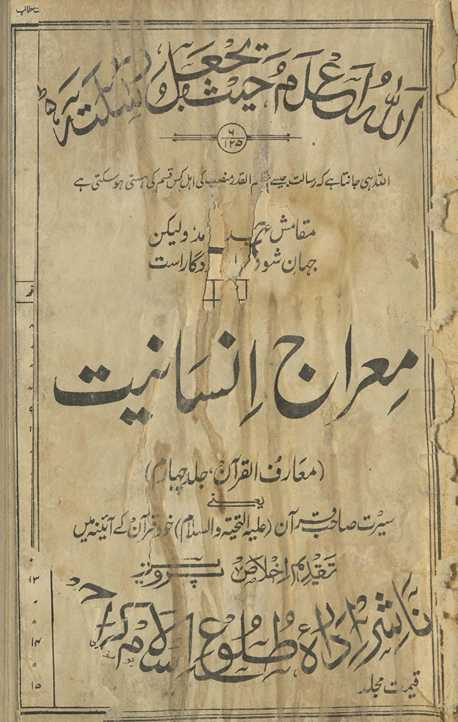 اللہُ اَعْلَمُ حَیْثُ یَجْعَلُ رِسٰلَتَہٗ
۶
۱۲۵
اللہ ہی جانتا ہے کہ رسالت جیسے القدر منصب کی اہل کس قسم کی ہستی ہو سکتی ہے
مقامش عبدہٗ آمد ولیکن
جہان شوق را پروردگار است
معراج انسانیت
(معارف القرآن، جلد چہارم)
یعنی
سیرت صاحب قرآن (علیہ التحیۃ والسلام) خود قرآن کے آئینہ میں
تقدیم اخلاص پرویز
ناشر ادارہ طلوع اسلام کراچی
قیمت مجلد
۱۳
۱۴
۱۵